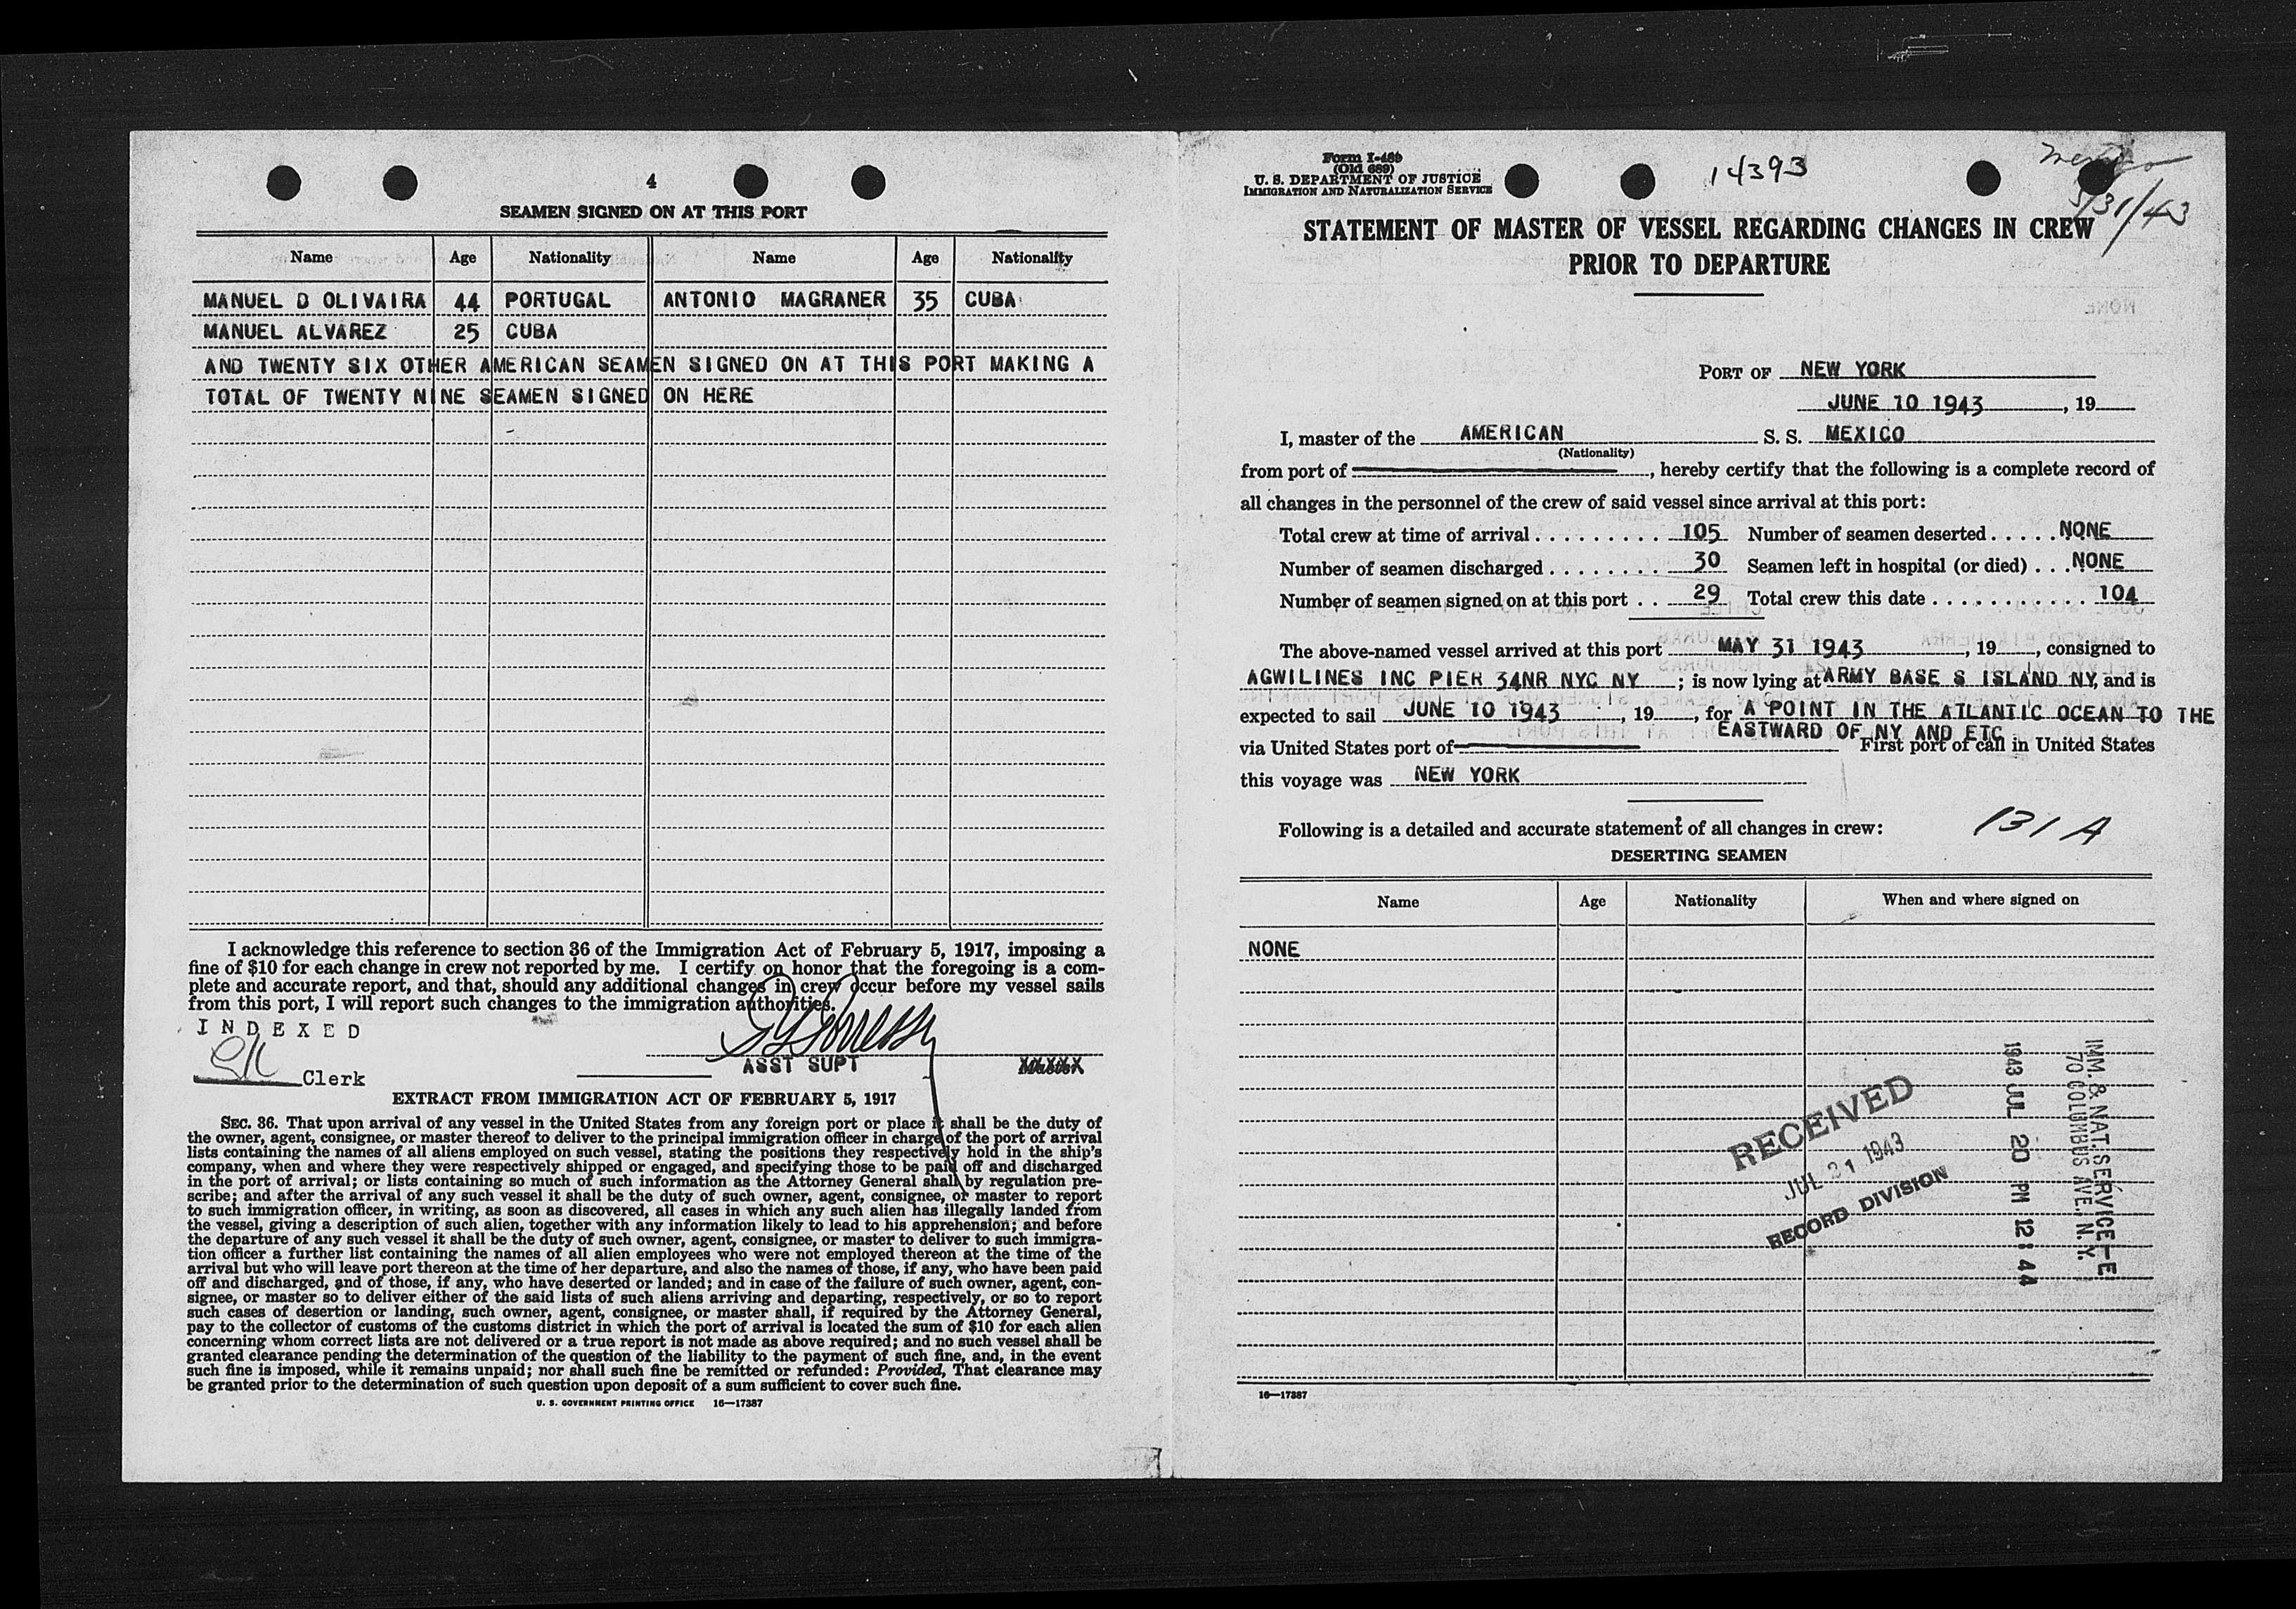 4
SEAMEN SIGNED ON AT THIS PORT
Name Age Nationality Name Age Nationality
MANUEL D OLIVAIRA 44 PORTUGAL ANTONIO MAGRANER 35 CUBA
MANUEL ALVAREZ 25 CUBA
AND TWENTY SIX OTHER AMERICAN SEAMEN SIGNED ON AT THIS PORT MAKING A
TOTAL OF TWENTY NINE SEAMEN SIGNED ON HERE
I acknowledge this reference to section 36 of the Immigration Act of February 5, 1917, imposing a
fine of $10 for each change in crew not reported by me. I certify on honor that the foregoing is a com-
plete and accurate report, and that, should any additional changes in crew occur before my vessel sails
from this port, I will report such changes to the immigration authorities.
INDEXED
Clerk
ASST SUPT
EXTRACT FROM IMMIGRATION ACT OF FEBRUARY 5, 1917
SEC. 36. That upon arrival of any vessel in the United States from any foreign port or place it shall be the duty of
the owner, agent, consignee, or master thereof to deliver to the principal immigration officer in charge of the port of arrival
lists containing the names of all aliens employed on such vessel, stating the positions they respectively hold in the ship's
company, when and where they were respectively shipped or engaged, and specifying those to be paid off and discharged
in the port of arrival; or lists containing so much of such information as the Attorney General shall by regulation pre-
scribe; and after the arrival of any such vessel it shall be the duty of such owner, agent, consignee, or master to report
to such immigration officer, in writing, as soon as discovered, all cases in which any such alien has illegally landed from
the vessel, giving a description of such alien, together with any information likely to lead to his apprehension; and before
the departure of any such vessel it shall be the duty of such owner, agent, consignee, or master to deliver to such immigra-
tion officer a further list containing the names of all alien employees who were not employed thereon at the time of the
arrival but who will leave port thereon at the time of her departure, and also the names of those, if any, who have been paid
off and discharged, and of those, if any, who have deserted or landed; and in case of the failure of such owner, agent, con-
signee, or master so to deliver either of the said lists of such aliens arriving and departing, respectively, or so to report
such cases of desertion or landing, such owner, agent, consignee, or master shall, if required by the Attorney General,
pay to the collector of customs of the customs district in which the port of arrival is located the sum of $10 for each alien
concerning whom correct lists are not delivered or a true report is not made as above required; and no such vessel shall be
granted clearance pending the determination of the question of the liability to the payment of such fine, and, in the event
such fine is imposed, while it remains unpaid; nor shall such fine be remitted or refunded: Provided, That clearance may
be granted prior to the determination of such question upon deposit of a sum sufficient to cover such fine.
U. S. GOVERNMENT PRINTING OFFICE 16—17387
Form I-489
(Old 689)
U. S. DEPARTMENT OF JUSTICE
IMMIGRATION AND NATURALIZATION SERVICE
14393
Mexico
5/31/43
STATEMENT OF MASTER OF VESSEL REGARDING CHANGES IN CREW
PRIOR TO DEPARTURE
PORT OF NEW YORK
JUNE 10 1943, 19
I, master of the AMERICAN S. S. MEXICO
(Nationality)
from port of , hereby certify that the following is a complete record of
all changes in the personnel of the crew of said vessel since arrival at this port:
Total crew at time of arrival . . . . . . . . . . 105 Number of seamen deserted . . . . . NONE
Number of seamen discharged . . . . . . . . 30 Seamen left in hospital (or died) . . . NONE
Number of seamen signed on at this port . . 29 Total crew this date . . . . . . . . . . . . 104
The above-named vessel arrived at this port MAY 31 1943, 19, consigned to
AGWILINES INC PIER 34NR NYC NY ; is now lying at ARMY BASE S ISLAND NY, and is
expected to sail JUNE 10 1943, 19, for A POINT IN THE ATLANTIC OCEAN TO THE
EASTWARD OF NY AND ETC
via United States port of First port of call in United States
this voyage was NEW YORK
Following is a detailed and accurate statement of all changes in crew:
131 A
DESERTING SEAMEN
Name Age Nationality When and where signed on
NONE
RECEIVED
JUL 21 1943
RECORD DIVISION
IMM. & NAT. SERVICE—E
70 COLUMBUS AVE., N. Y.
1943 JUL 20 PM 12:44
16—17387